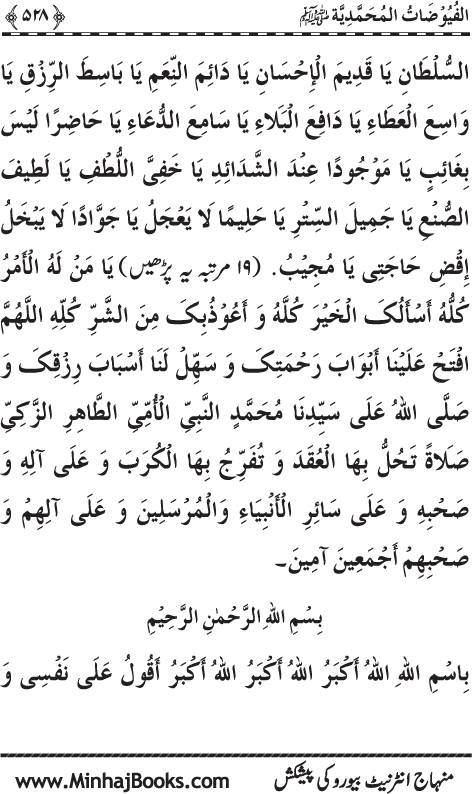 الفُیُوْضَاتُ المُحَمَّدِیَّة ﷺ ﴿۵۲۸﴾
السُّلْطَانِ يَا قَدِيمَ الْإِحْسَانِ يَا دَائِمَ النِّعَمِ يَا بَاسِطَ الرِّزْقِ يَا
وَاسِعَ الْعَطَاءِ يَا دَافِعَ الْبَلَاءِ يَا سَامِعَ الدُّعَاءِ يَا حَاضِرًا لَيْسَ
بِغَائِبٍ يَا مَوْجُودًا عِنْدَ الشَّدَائِدِ يَا خَفِيَّ اللُّطْفِ يَا لَطِيفَ
الصُّنْعِ يَا جَمِيلَ السِّتْرِ يَا حَلِيمًا لَا يَعْجَلُ يَا جَوَّادًا لَا يَبْخَلُ
إِقْضِ حَاجَتِي يَا مُجِيْبُ. (۱۹ مرتبہ یہ پڑھیں) يَا مَنْ لَهُ الْأَمْرُ
كُلُّهُ أَسْأَلُکَ الْخَيْرَ كُلَّهُ وَ أَعُوْذُبِکَ مِنَ الشَّرِّ كُلِّهِ اللَّهُمَّ
افْتَحْ عَلَيْنَا أَبْوَابَ رَحْمَتِکَ وَ سَهِّلْ لَنَا أَسْبَابَ رِزْقِکَ وَ
صَلَّى اللهُ عَلَى سَيِّدِنَا مُحَمَّدٍ النَّبِيِّ الْأُمِّيِّ الطَّاهِرِ الزَّكِيِّ
صَلَاةً تَحُلُّ بِهَا الْعُقَدَ وَ تُفَرِّجُ بِهَا الْكُرَبَ وَ عَلَى آلِهِ وَ
صَحْبِهِ وَ عَلَى سَائِرِ الْأَنْبِيَاءِ وَالْمُرْسَلِينَ وَ عَلَى آلِهِمْ وَ
صَحْبِهِمْ أَجْمَعِينَ آمِينَ۔
بِسْمِ اللهِ الرَّحْمٰنِ الرَّحِيْمِ
بِاسْمِ اللهِ اللهُ أَكْبَرُ اللهُ أَكْبَرُ اللهُ أَكْبَرُ أَقُولُ عَلَى نَفْسِى وَ
منہاج انٹرنیٹ بیورو کی پیشکش www.MinhajBooks.com